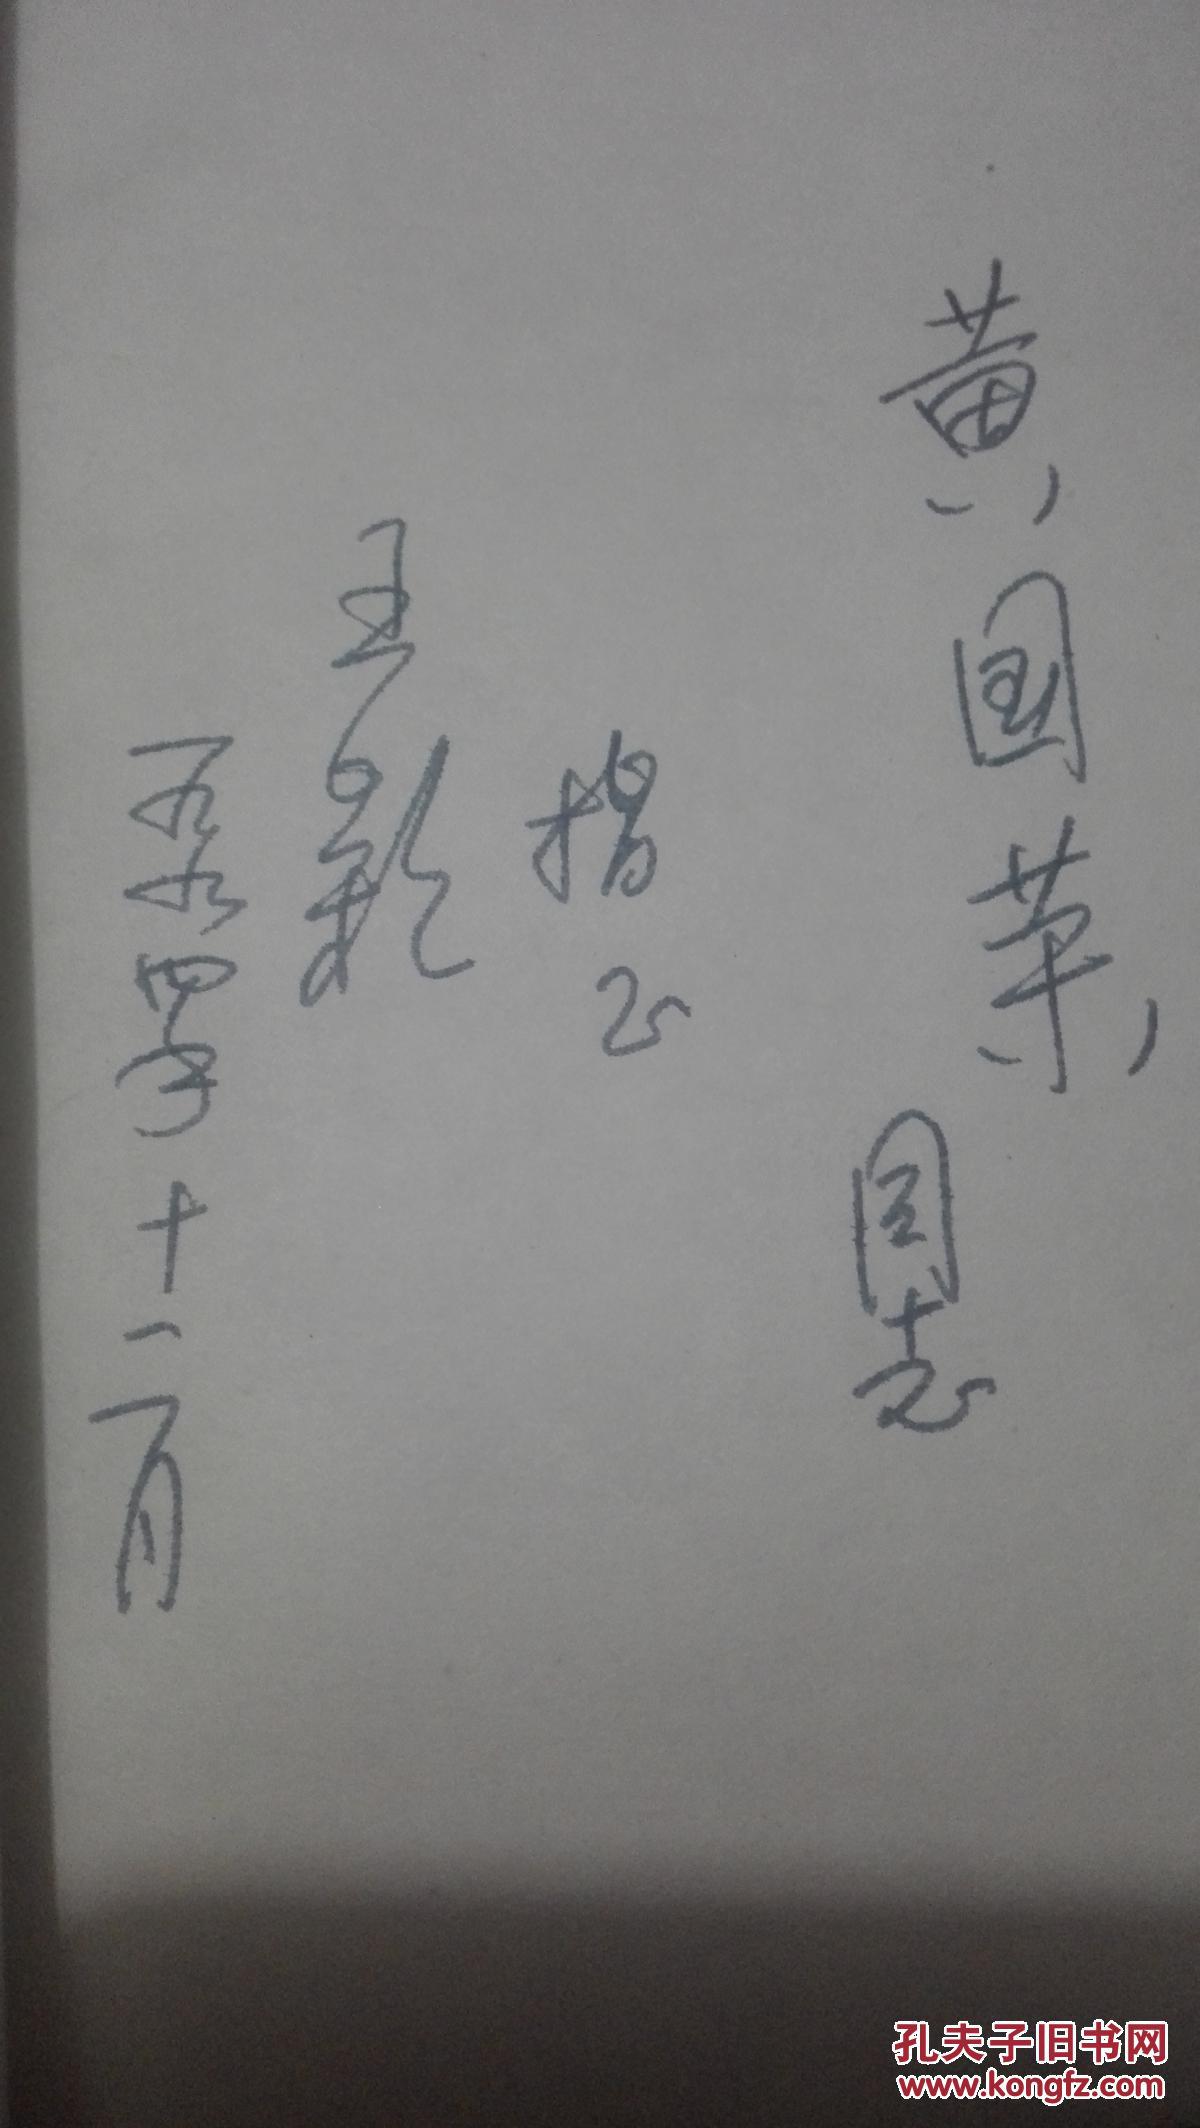 黄国荣同志
指正
王
一九九四年十二月
孔夫子旧书网
www.kongfz.com